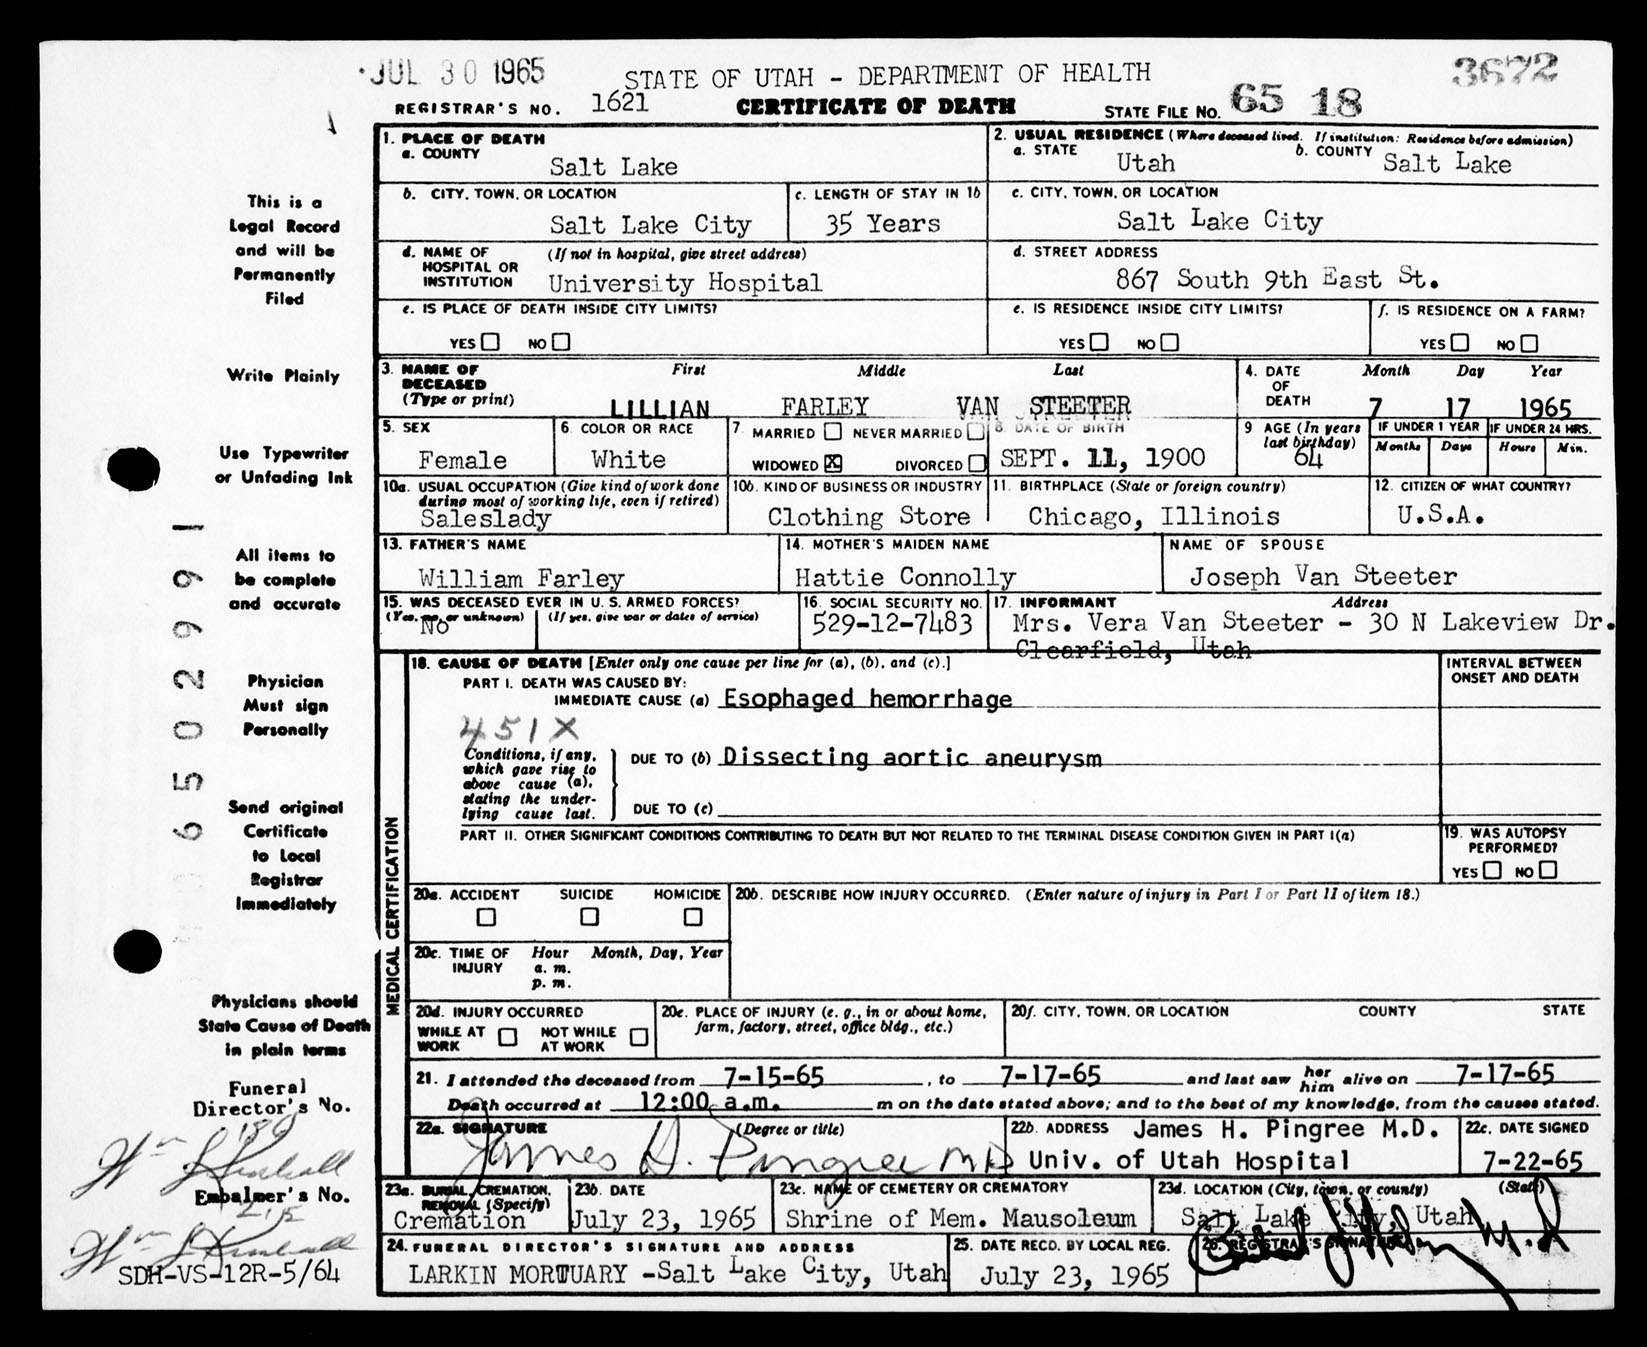 JUL 30 1965
3672
STATE OF UTAH - DEPARTMENT OF HEALTH
REGISTRAR'S NO. 1621 CERTIFICATE OF DEATH STATE FILE NO. 65 18
1. PLACE OF DEATH
a. COUNTY
Salt Lake
2. USUAL RESIDENCE (Where deceased lived. If institution: Residence before admission)
a. STATE Utah b. COUNTY Salt Lake
b. CITY, TOWN, OR LOCATION
Salt Lake City
c. LENGTH OF STAY IN 1b
35 Years
c. CITY, TOWN, OR LOCATION
Salt Lake City
d. NAME OF (If not in hospital, give street address)
HOSPITAL OR
INSTITUTION University Hospital
d. STREET ADDRESS
867 South 9th East St.
e. IS PLACE OF DEATH INSIDE CITY LIMITS?
YES NO
e. IS RESIDENCE INSIDE CITY LIMITS?
YES NO
f. IS RESIDENCE ON A FARM?
YES NO
3. NAME OF First Middle Last
DECEASED
(Type or print)
LILLIAN FARLEY VAN STEETER
4. DATE Month Day Year
OF
DEATH 7 17 1965
5. SEX
Female
6. COLOR OR RACE
White
7. MARRIED NEVER MARRIED
WIDOWED X DIVORCED
8. DATE OF BIRTH
SEPT. 11, 1900
9 AGE (In years
last birthday)
64
IF UNDER 1 YEAR IF UNDER 24 HRS.
Months Days Hours Min.
10a. USUAL OCCUPATION (Give kind of work done
during most of working life, even if retired)
Saleslady
10b. KIND OF BUSINESS OR INDUSTRY
Clothing Store
11. BIRTHPLACE (State or foreign country)
Chicago, Illinois
12. CITIZEN OF WHAT COUNTRY?
U.S.A.
13. FATHER'S NAME
William Farley
14. MOTHER'S MAIDEN NAME
Hattie Connolly
NAME OF SPOUSE
Joseph Van Steeter
15. WAS DECEASED EVER IN U. S. ARMED FORCES?
(Yes, no, or unknown) (If yes, give war or dates of service)
No
16. SOCIAL SECURITY NO.
529-12-7483
17. INFORMANT Address
Mrs. Vera Van Steeter - 30 N Lakeview Dr.
Clearfield, Utah
MEDICAL CERTIFICATION
18. CAUSE OF DEATH [Enter only one cause per line for (a), (b), and (c).]
PART I. DEATH WAS CAUSED BY:
IMMEDIATE CAUSE (a) Esophaged hemorrhage
INTERVAL BETWEEN
ONSET AND DEATH
451X
Conditions, if any,
which gave rise to
above cause (a),
stating the under-
lying cause last.
DUE TO (b) Dissecting aortic aneurysm
DUE TO (c)
PART II. OTHER SIGNIFICANT CONDITIONS CONTRIBUTING TO DEATH BUT NOT RELATED TO THE TERMINAL DISEASE CONDITION GIVEN IN PART I(a)
19. WAS AUTOPSY
PERFORMED?
YES NO
20a. ACCIDENT SUICIDE HOMICIDE
20b. DESCRIBE HOW INJURY OCCURRED. (Enter nature of injury in Part I or Part II of item 18.)
20c. TIME OF Hour Month, Day, Year
INJURY a. m.
p. m.
20d. INJURY OCCURRED
WHILE AT NOT WHILE
WORK AT WORK
20e. PLACE OF INJURY (e. g., in or about home,
farm, factory, street, office bldg., etc.)
20f. CITY, TOWN, OR LOCATION COUNTY STATE
21. I attended the deceased from 7-15-65, to 7-17-65 and last saw her him alive on 7-17-65
Death occurred at 12:00 a.m. m on the date stated above; and to the best of my knowledge, from the causes stated.
22a. SIGNATURE (Degree or title)
James H. Pingree MD
22b. ADDRESS James H. Pingree M.D.
Univ. of Utah Hospital
22c. DATE SIGNED
7-22-65
23a. BURIAL, CREMATION,
REMOVAL (Specify)
Cremation
23b. DATE
July 23, 1965
23c. NAME OF CEMETERY OR CREMATORY
Shrine of Mem. Mausoleum
23d. LOCATION (City, town, or county) (State)
Salt Lake City, Utah
24. FUNERAL DIRECTOR'S SIGNATURE AND ADDRESS
LARKIN MORTUARY -Salt Lake City, Utah
25. DATE RECD. BY LOCAL REG.
July 23, 1965
26. REGISTRAR'S SIGNATURE
This is a
Legal Record
and will be
Permanently
Filed
Write Plainly
Use Typewriter
or Unfading Ink
All items to
be complete
and accurate
Physician
Must sign
Personally
Send original
Certificate
to Local
Registrar
Immediately
Physicians should
State Cause of Death
in plain terms
Funeral
Director's No.
Embalmer's No.
SDH-VS-12R-5/64